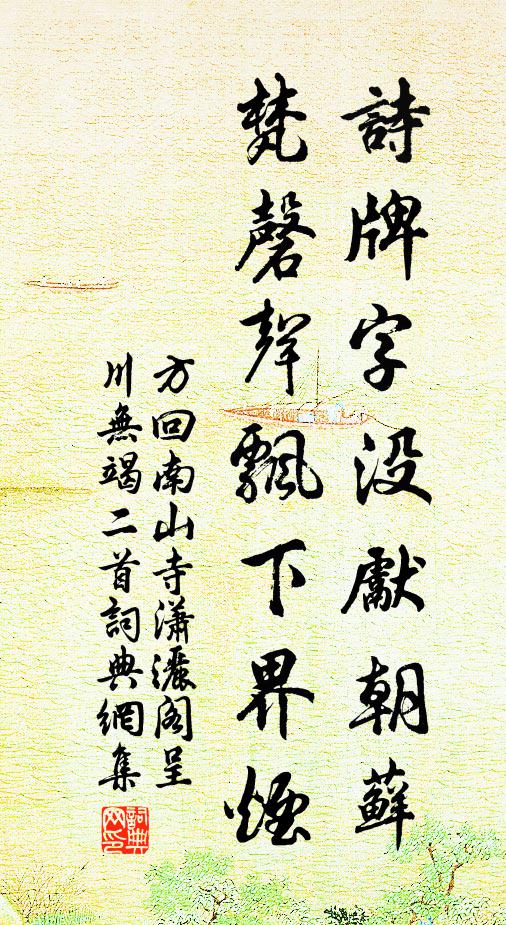 詩牌字没獻朝蘚
梵磬聲飄下界煙
方回南山寺瀟灑閣呈
川無竭二首詞典網集
詞典
网印